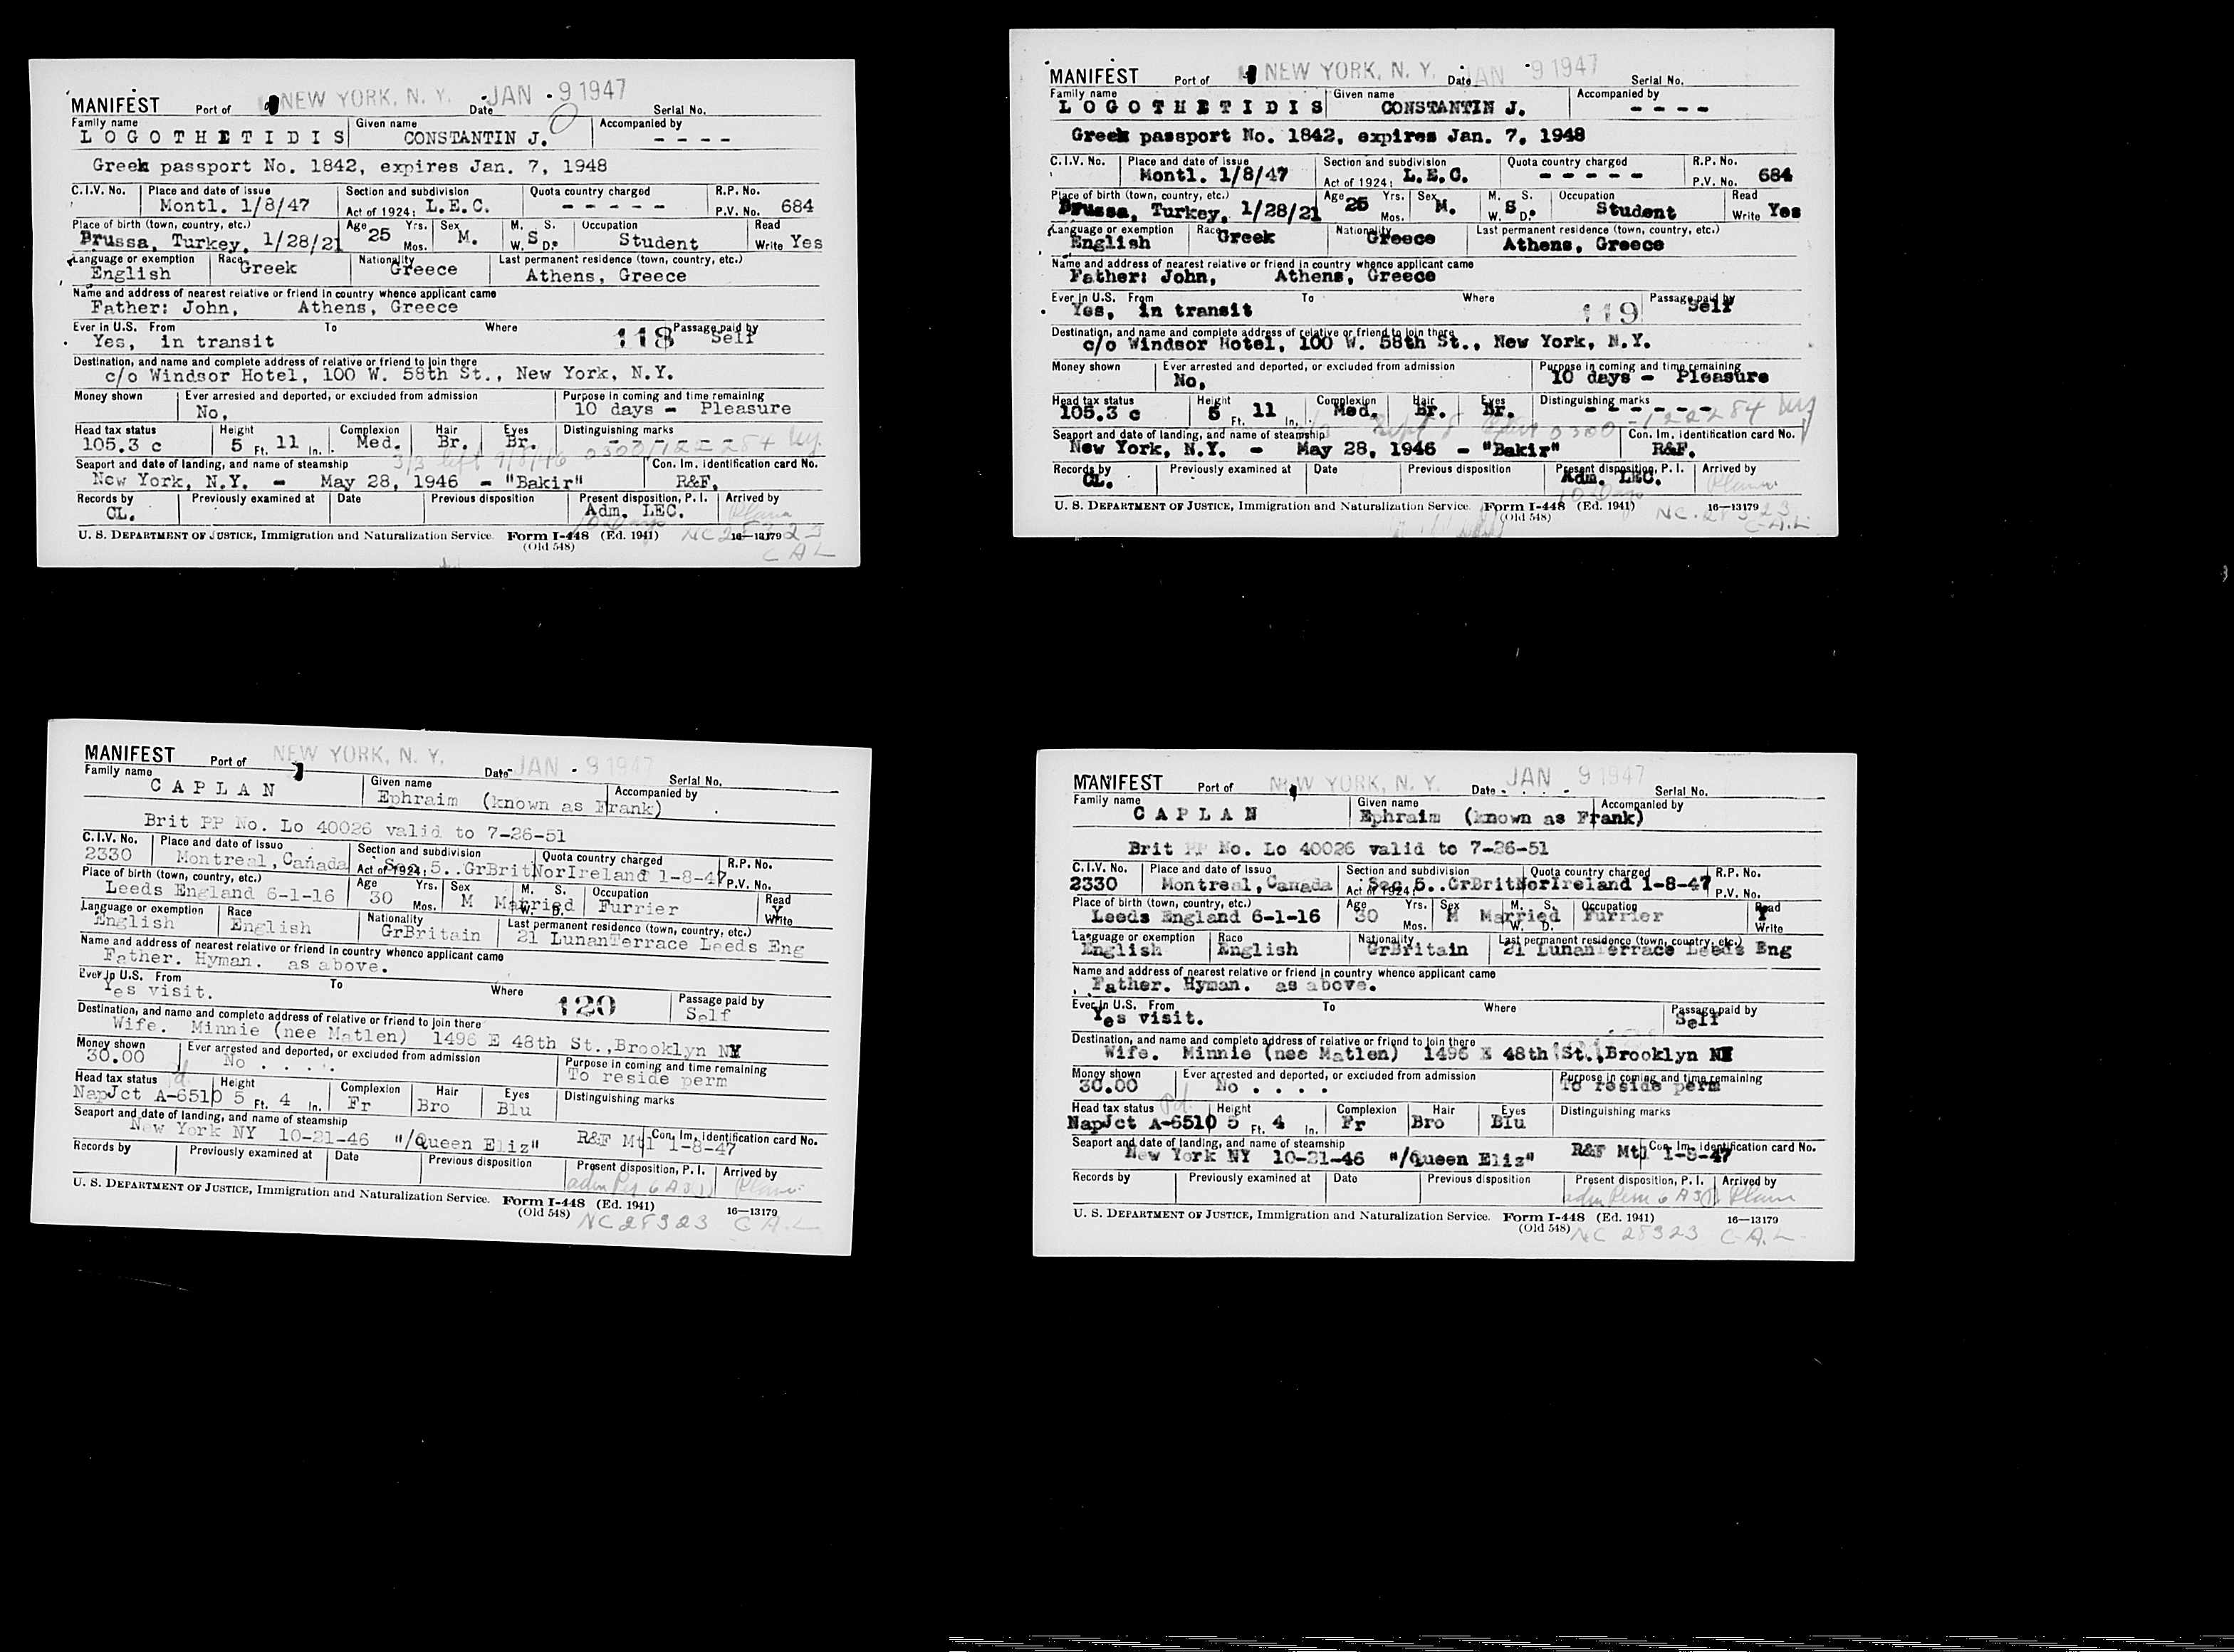 MANIFEST Port of NEW YORK, N. Y. Date JAN - 9 1947 Serial No.
Family name Given name Accompanied by
L O G O T H E T I D I S CONSTANTIN J. - - - -
Greek passport No. 1842, expires Jan. 7, 1948
C.I.V. No. Place and date of issue Section and subdivision Quota country charged R.P. No.
Montl. 1/8/47 Act of 1924: L.E.C. - - - - - P.V. No. 684
Place of birth (town, country, etc.) Age Yrs. Sex M. S. Occupation Read
Brussa, Turkey, 1/28/21 25 Mos. M. W. S D. Student Write Yes
Language or exemption Race Nationality Last permanent residence (town, country, etc.)
English Greek Greece Athens, Greece
Name and address of nearest relative or friend in country whence applicant came
Father: John, Athens, Greece
Ever in U.S. From To Where 118 Passage paid by
Yes, in transit Self
Destination, and name and complete address of relative or friend to join there
c/o Windsor Hotel, 100 W. 58th St., New York, N.Y.
Money shown Ever arrested and deported, or excluded from admission Purpose in coming and time remaining
No. 10 days - Pleasure
Head tax status Height Complexion Hair Eyes Distinguishing marks
105.3 c 5 Ft. 11 In. Med. Br. Br. - - - - -
0300/122284
Seaport and date of landing, and name of steamship 3/3 left 9/8/46 Con. Im. identification card No.
New York, N.Y. - May 28, 1946 - "Bakir" R&F.
Records by Previously examined at Date Previous disposition Present disposition, P. I. Arrived by
CL. Adm. LEC. Plane
10 Days
U. S. DEPARTMENT OF JUSTICE, Immigration and Naturalization Service. Form I-448 (Ed. 1941) 16—13179
(Old 548) NC 28323
C A L
MANIFEST Port of NEW YORK, N. Y. Date JAN -9 1947 Serial No.
Family name Given name Accompanied by
L O G O T H E T I D I S CONSTANTIN J. - - - -
Greek passport No. 1842, expires Jan. 7, 1948
C.I.V. No. Place and date of issue Section and subdivision Quota country charged R.P. No.
Montl. 1/8/47 Act of 1924: L.E.C. - - - - - P.V. No. 684
Place of birth (town, country, etc.) Age Yrs. Sex M. S. Occupation Read
Brussa, Turkey, 1/28/21 25 Mos. M. W. S D. Student Write Yes
Language or exemption Race Nationality Last permanent residence (town, country, etc.)
English Greek Greece Athens, Greece
Name and address of nearest relative or friend in country whence applicant came
Father: John, Athens, Greece
Ever in U.S. From To Where 119 Passage paid by
Yes, in transit Self
Destination, and name and complete address of relative or friend to join there
c/o Windsor Hotel, 100 W. 58th St., New York, N.Y.
Money shown Ever arrested and deported, or excluded from admission Purpose in coming and time remaining
No. 10 days - Pleasure
Head tax status Height Complexion Hair Eyes Distinguishing marks
105.3 c 5 Ft. 11 In. Med. Br. Br. - - - - - -
0300 - 122284
Seaport and date of landing, and name of steamship Con. Im. identification card No.
New York, N.Y. - May 28, 1946 - "Bakir" R&F.
Records by Previously examined at Date Previous disposition Present disposition, P. I. Arrived by
CL. Adm. LEC. Plane
10 Days
U. S. DEPARTMENT OF JUSTICE, Immigration and Naturalization Service. Form I-448 (Ed. 1941) 16—13179
(Old 548) NC. 28323
C-A.L.
MANIFEST Port of NEW YORK, N. Y. Date JAN - 9 1947 Serial No.
Family name Given name Accompanied by
C A P L A N Ephraim (known as Frank)
Brit PP No. Lo 40026 valid to 7-26-51
C.I.V. No. Place and date of issue Section and subdivision Quota country charged R.P. No.
2330 Montreal, Canada Act of 1924; Sec 5..GrBritNorIreland 1-8-47 P.V. No.
Place of birth (town, country, etc.) Age Yrs. Sex M. S. Occupation Read
Leeds England 6-1-16 30 Mos. M Married W. D. Furrier Y Write
Language or exemption Race Nationality Last permanent residence (town, country, etc.)
English English GrBritain 21 LunanTerrace Leeds Eng
Name and address of nearest relative or friend in country whence applicant came
Father. Hyman. as above.
Ever in U.S. From To Where 120 Passage paid by
Yes visit. Self
Destination, and name and complete address of relative or friend to join there
Wife. Minnie (nee Matlen) 1496 E 48th St.,Brooklyn NY
Money shown Ever arrested and deported, or excluded from admission Purpose in coming and time remaining
30.00 No . . . . To reside perm
Head tax status Pd. Height Complexion Hair Eyes Distinguishing marks
NapJct A-6510 5 Ft. 4 In. Fr Bro Blu
Seaport and date of landing, and name of steamship Con. Im. identification card No.
New York NY 10-21-46 "/Queen Eliz" R&F Mtl 1-8-47
Records by Previously examined at Date Previous disposition Present disposition, P. I. Arrived by
Plane
U. S. DEPARTMENT OF JUSTICE, Immigration and Naturalization Service. Form I-448 (Ed. 1941) 16—13179
(Old 548) NC 28323 C A L
MANIFEST Port of NEW YORK, N. Y. Date JAN 9 1947 Serial No.
Family name Given name Accompanied by
C A P L A N Ephraim (known as Frank)
Brit PP No. Lo 40026 valid to 7-26-51
C.I.V. No. Place and date of issue Section and subdivision Quota country charged R.P. No.
2330 Montreal, Canada Act of 1924; Sec 5..GrBritNorIreland 1-8-47 P.V. No.
Place of birth (town, country, etc.) Age Yrs. Sex M. S. Occupation Read
Leeds England 6-1-16 30 Mos. M Married W. D. Furrier Y Write
Language or exemption Race Nationality Last permanent residence (town, country, etc.)
English English GrBritain 21 LunanTerrace Leeds Eng
Name and address of nearest relative or friend in country whence applicant came
Father. Hyman. as above.
Ever in U.S. From To Where Passage paid by
Yes visit. Self
Destination, and name and complete address of relative or friend to join there
Wife. Minnie (nee Matlen) 1496 E 48th St.,Brooklyn NY
Money shown Ever arrested and deported, or excluded from admission Purpose in coming and time remaining
30.00 No . . . . To reside perm
Head tax status Pd. Height Complexion Hair Eyes Distinguishing marks
NapJct A-6510 5 Ft. 4 In. Fr Bro Blu
Seaport and date of landing, and name of steamship Con. Im. identification card No.
New York NY 10-21-46 "/Queen Eliz" R&F Mtl 1-8-47
Records by Previously examined at Date Previous disposition Present disposition, P. I. Arrived by
Plane
U. S. DEPARTMENT OF JUSTICE, Immigration and Naturalization Service. Form I-448 (Ed. 1941) 16—13179
(Old 548) NC 28323 C-A.L-